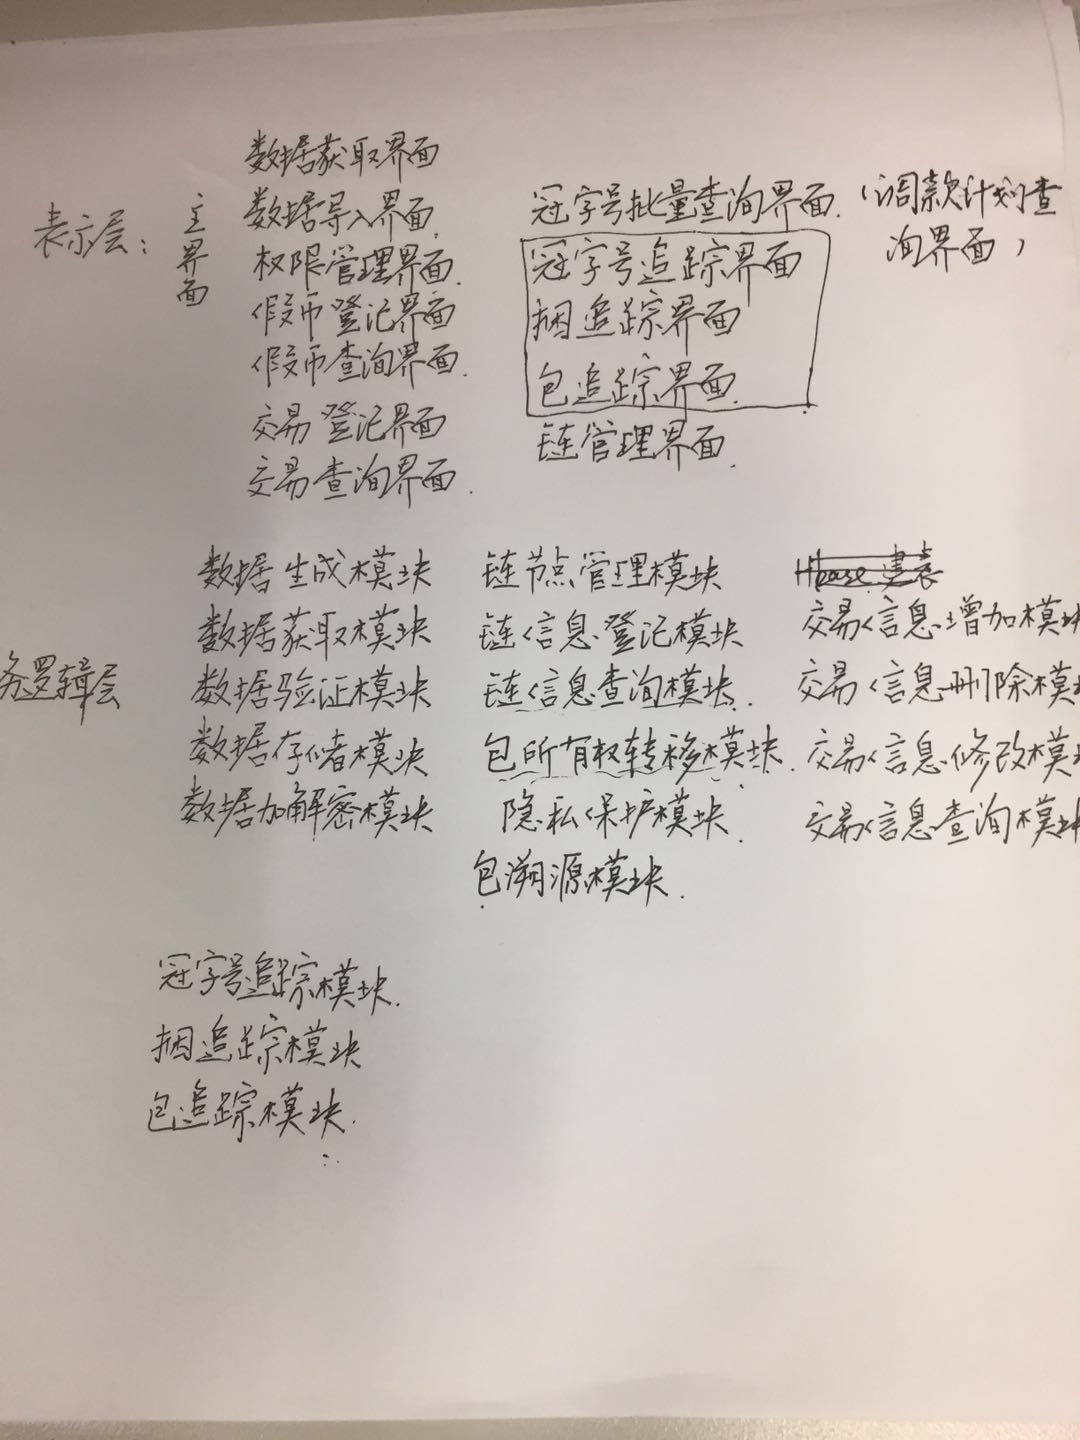 表示层:
主界面
数据获取界面
数据导入界面.
权限管理界面.
假币登记界面
假币查询界面.
交易登记界面
交易查询界面.
冠字号批量查询界面.
冠字号追踪界面
捆追踪界面
包追踪界面.
链管理界面.
(调款计划查
询界面)
务逻辑层
数据生成模块
数据获取模块
数据验证模块
数据存储模块
数据加解密模块
链节点管理模块
链信息登记模块
链信息查询模块.
包所有权转移模块.
隐私保护模块.
包溯源模块.
Hbase 建表
交易信息增加模块
交易信息删除模
交易信息修改模
交易信息查询模块
冠字号追踪模块.
捆追踪模块
包追踪模块.